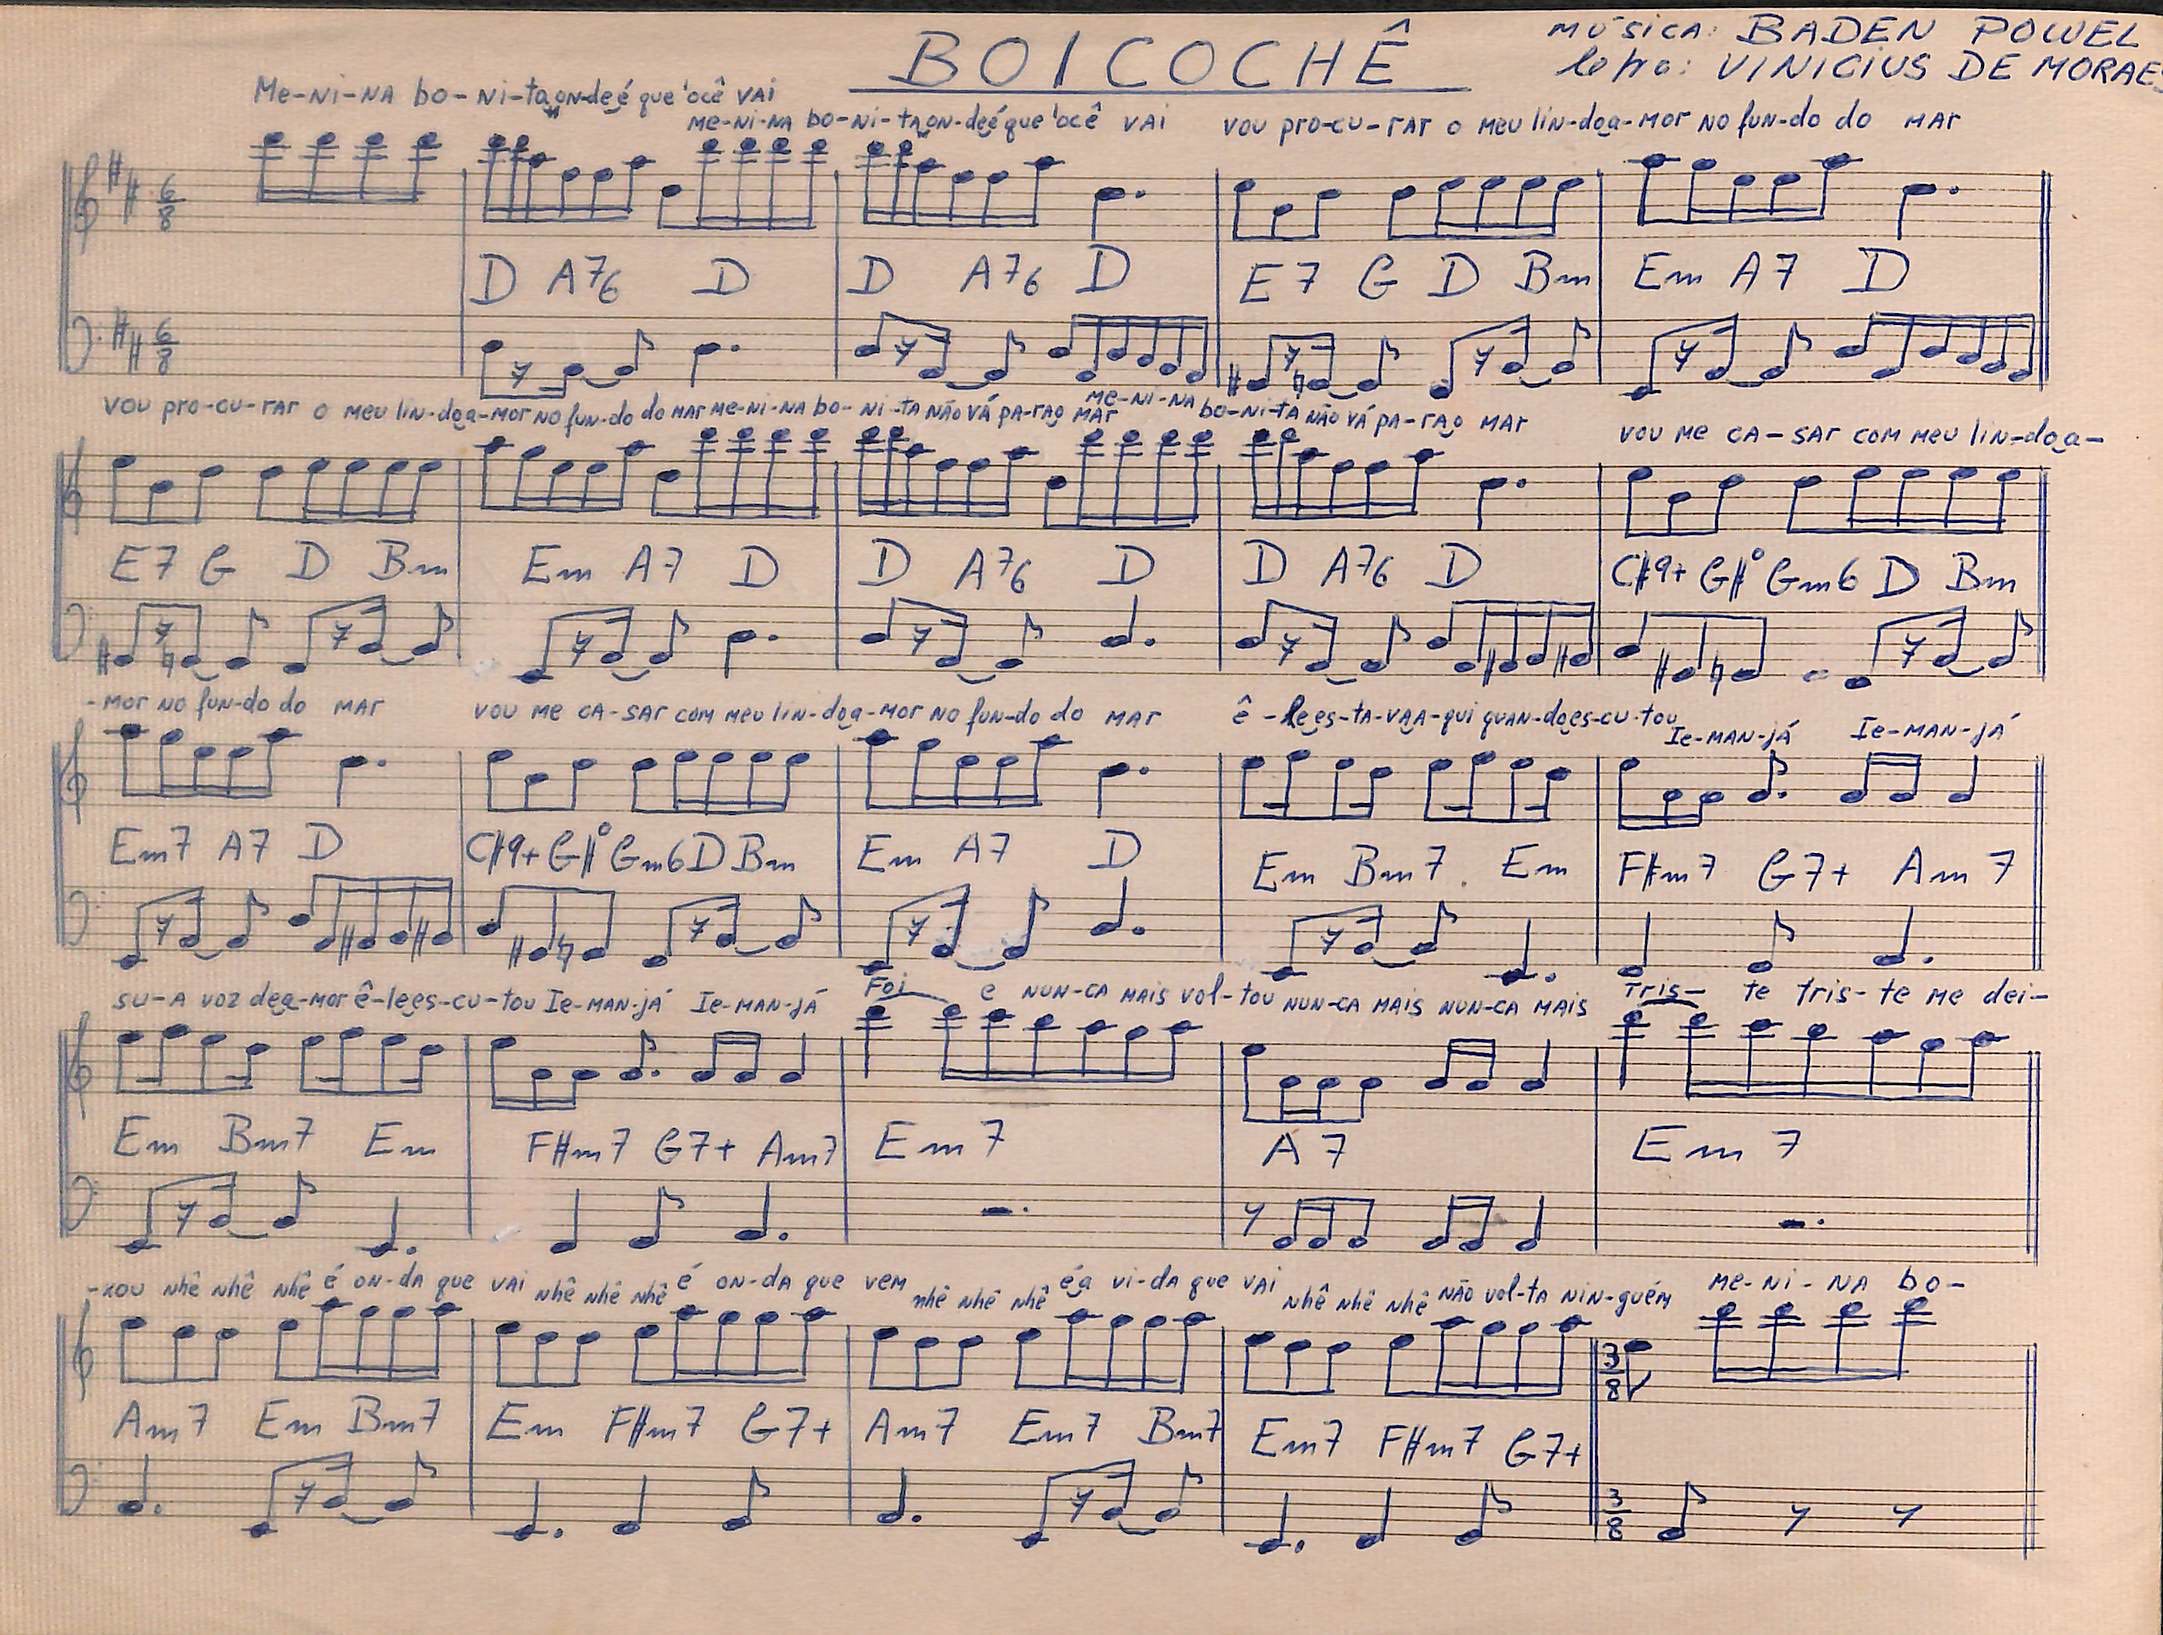 BOICOCHÊ
música: BADEN POWEL
letra: VINICIUS DE MORAES
Me-NI-NA bo-NI-ta on-de é que 'ocê VAI
Me-NI-NA bo-NI-TA ON-de é que 'ocê VAI VOU PRO-CU-RAR O MEU LIN-do a-MOR NO FUN-do do MAR
6/8
D A76 D D A76 D E7 G D Bm Em A7 D
6/8
VOU PRO-CU-RAR O MEU LIN-do a-MOR NO FUN-do do MAR Me-NI-NA bo-NI-TA NÃO VÁ PA-RA O MAR Me-NI-NA bo-NI-TA NÃO VÁ PA-RA O MAR VOU Me CA-SAR COM MEU LIN-do a-
E7 G D Bm Em A7 D D A76 D D A76 D C#9+ G#° Gm6 D Bm
-MOR NO FUN-do do MAR VOU Me CA-SAR COM MEU LIN-do a-MOR NO FUN-do do MAR ê-le es-TA-VA A-QUI QUAN-do es-CU-TOU Ie-MAN-JÁ Ie-MAN-JÁ
Em7 A7 D C#9+ G#° Gm6 D Bm Em A7 D Em Bm7 Em F#m7 G7+ Am7
SU-A VOZ de a-MOR ê-le es-CU-TOU Ie-MAN-JÁ Ie-MAN-JÁ Foi e NUN-CA MAIS VOL-TOU NUN-CA MAIS NUN-CA MAIS TRIS-Te TRIS-Te Me dei-
Em Bm7 Em F#m7 G7+ Am7 Em7 A7 Em7
-XOU Nhê Nhê Nhê é ON-dA que VAI Nhê Nhê Nhê é ON-dA que VEM Nhê Nhê Nhê é a VI-dA que VAI Nhê Nhê Nhê NÃO VOL-TA NIN-GUÉM Me-NI-NA bo-
3/8
Am7 Em Bm7 Em F#m7 G7+ Am7 Em7 Bm7 Em7 F#m7 G7+
3/8